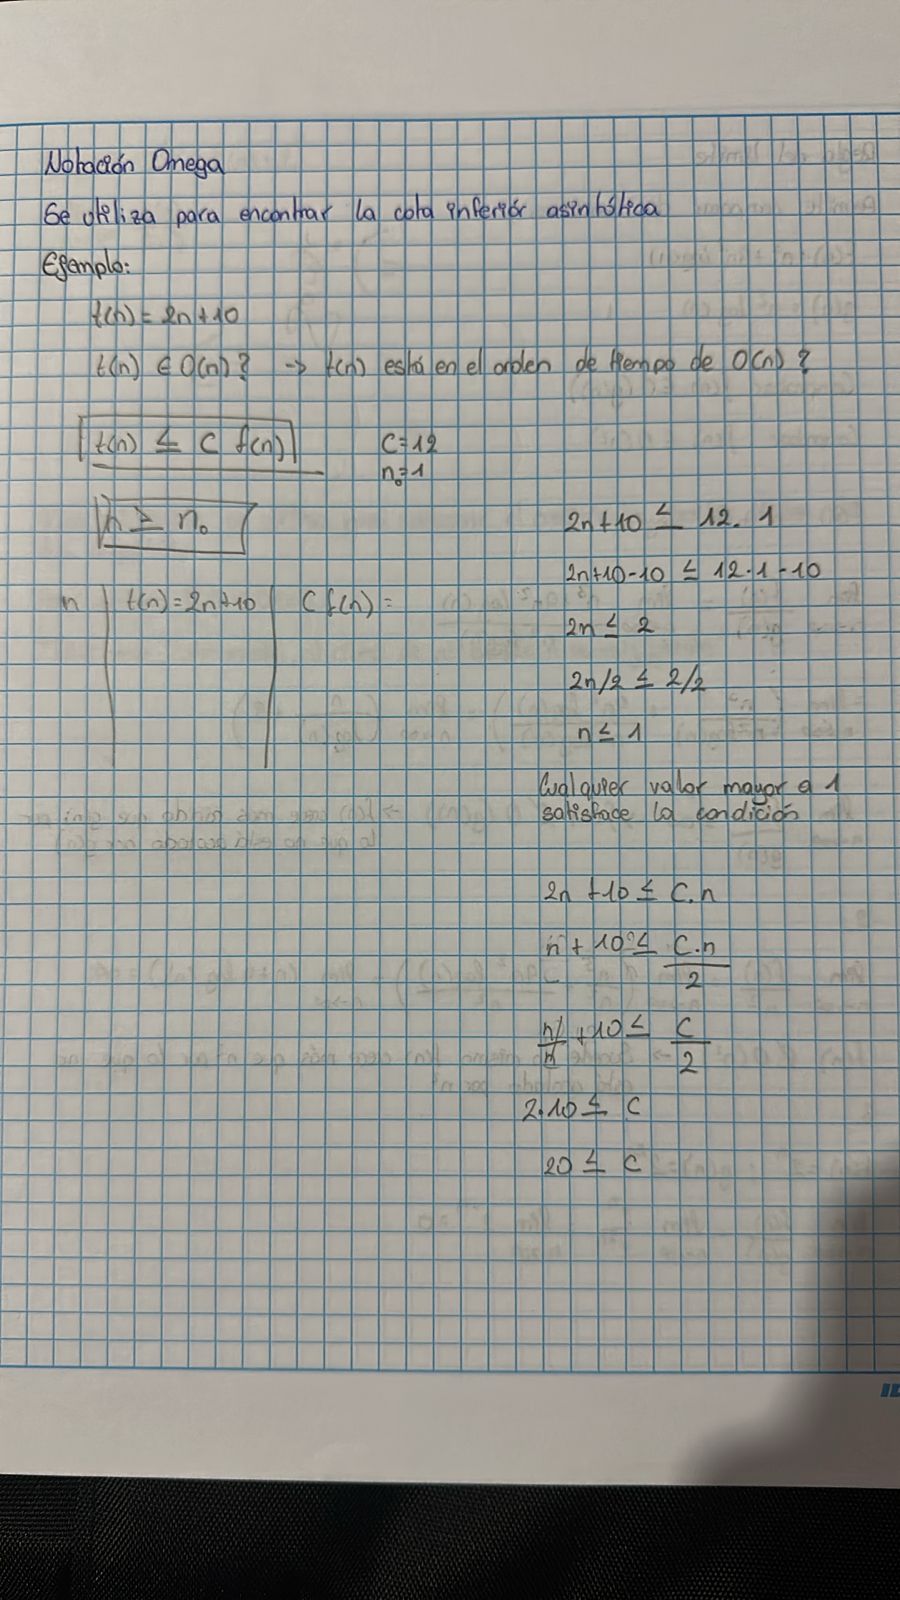 Notación Omega
Se utiliza para encontrar la cota inferiór asintótica
Ejemplo:
t(n) = 2n+10
t(n) ∈ O(n)? -> t(n) está en el orden de tiempo de O(n)?
t(n) ≤ C f(n)
C=12
n₀=1
n ≥ n₀
n | t(n)=2n+10 | C f(n) =
2n+10 ≤ 12. 1
2n+10-10 ≤ 12·1-10
2n ≤ 2
2n/2 ≤ 2/2
n ≤ 1
Cualquier valor mayor a 1
satisface la condición
2n +10 ≤ C.n
n + 10 ≤ C.n/2
n/n +10 ≤ C/2
2.10 ≤ C
20 ≤ C